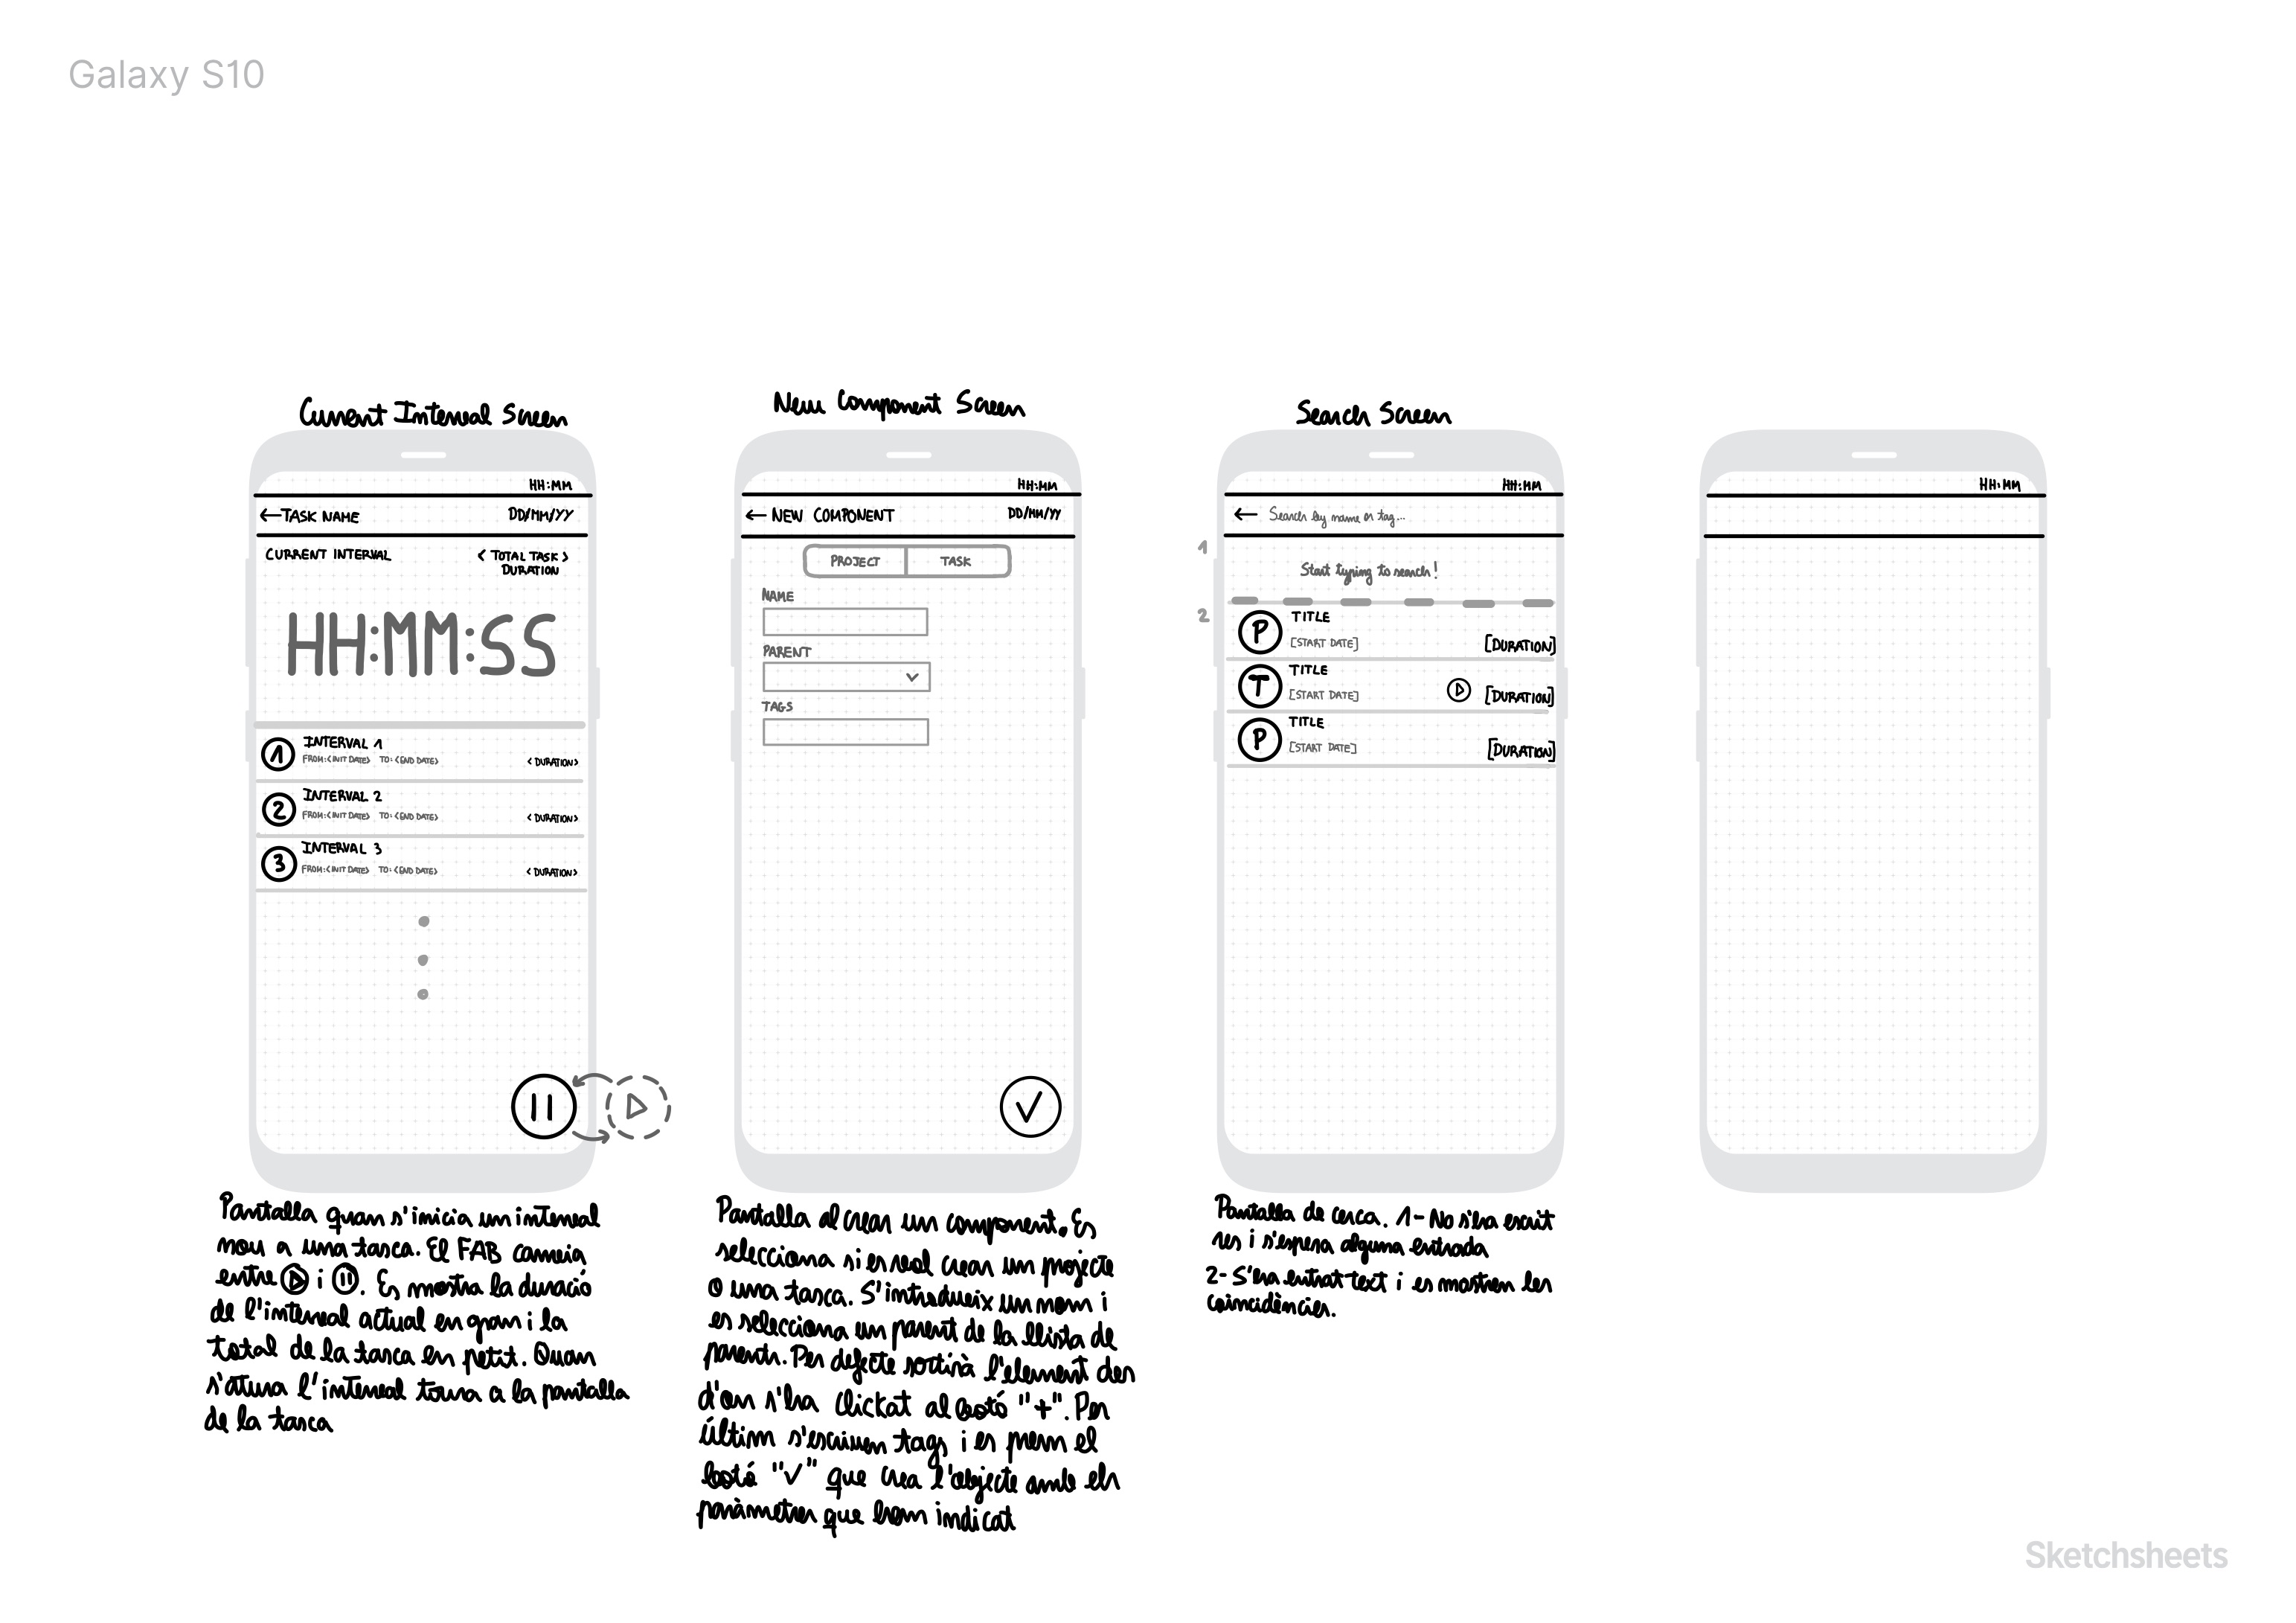 Galaxy S10
Current Interval Screen
HH:MM
← TASK NAME DD/MM/YY
CURRENT INTERVAL < TOTAL TASK >
DURATION
HH:MM:SS
1 INTERVAL 1
FROM:<INIT DATE> TO:<END DATE> <DURATION>
2 INTERVAL 2
FROM:<INIT DATE> TO:<END DATE> <DURATION>
3 INTERVAL 3
FROM:<INIT DATE> TO:<END DATE> <DURATION>
Pantalla quan s'inicia un interval
nou a una tasca. El FAB canvia
entre i . Es mostra la duració
de l'interval actual en gran i la
total de la tasca en petit. Quan
s'atura l'interval torna a la pantalla
de la tasca
New Component Screen
HH:MM
← NEW COMPONENT DD/MM/YY
PROJECT TASK
NAME
PARENT
TAGS
Pantalla al crear un component. Es
selecciona si es vol crear un projecte
o una tasca. S'introdueix un nom i
es selecciona un parent de la llista de
parents. Per defecte sortirà l'element des
d'on s'ha clickat al botó "+". Per
últim s'escriuen tags i es prem el
botó "✓" que crea l'objecte amb els
paràmetres que hem indicat
Search Screen
HH:MM
← Search by name or tag...
1
Start typing to search!
2
P TITLE
[START DATE] [DURATION]
T TITLE
[START DATE] [DURATION]
P TITLE
[START DATE] [DURATION]
Pantalla de cerca. 1- No s'ha escrit
res i s'espera alguna entrada
2- S'ha entrat text i es mostren les
coincidències.
HH:MM
Sketchsheets